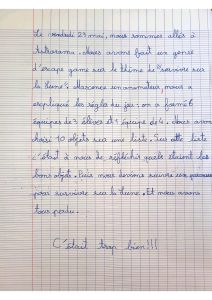 Le vendredi 23 mai, nous sommes allés à
Astrorama. Nous avons fait un genre
d'escape game sur le thème de "survivre sur
la Lune". Maxence un animateur, nous a
expliqué les règles du jeu : on a formé 6
équipes de 3 élèves et 1 équipe de 4. Nous avons
choisi 10 objets sur une liste. Sur cette liste
c'était à nous de réfléchir quels étaient les
bons objets. Puis nous devions suivre un parcours
pour survivre sur la Lune. Et nous avons
tous perdu.
C'était trop bien!!!